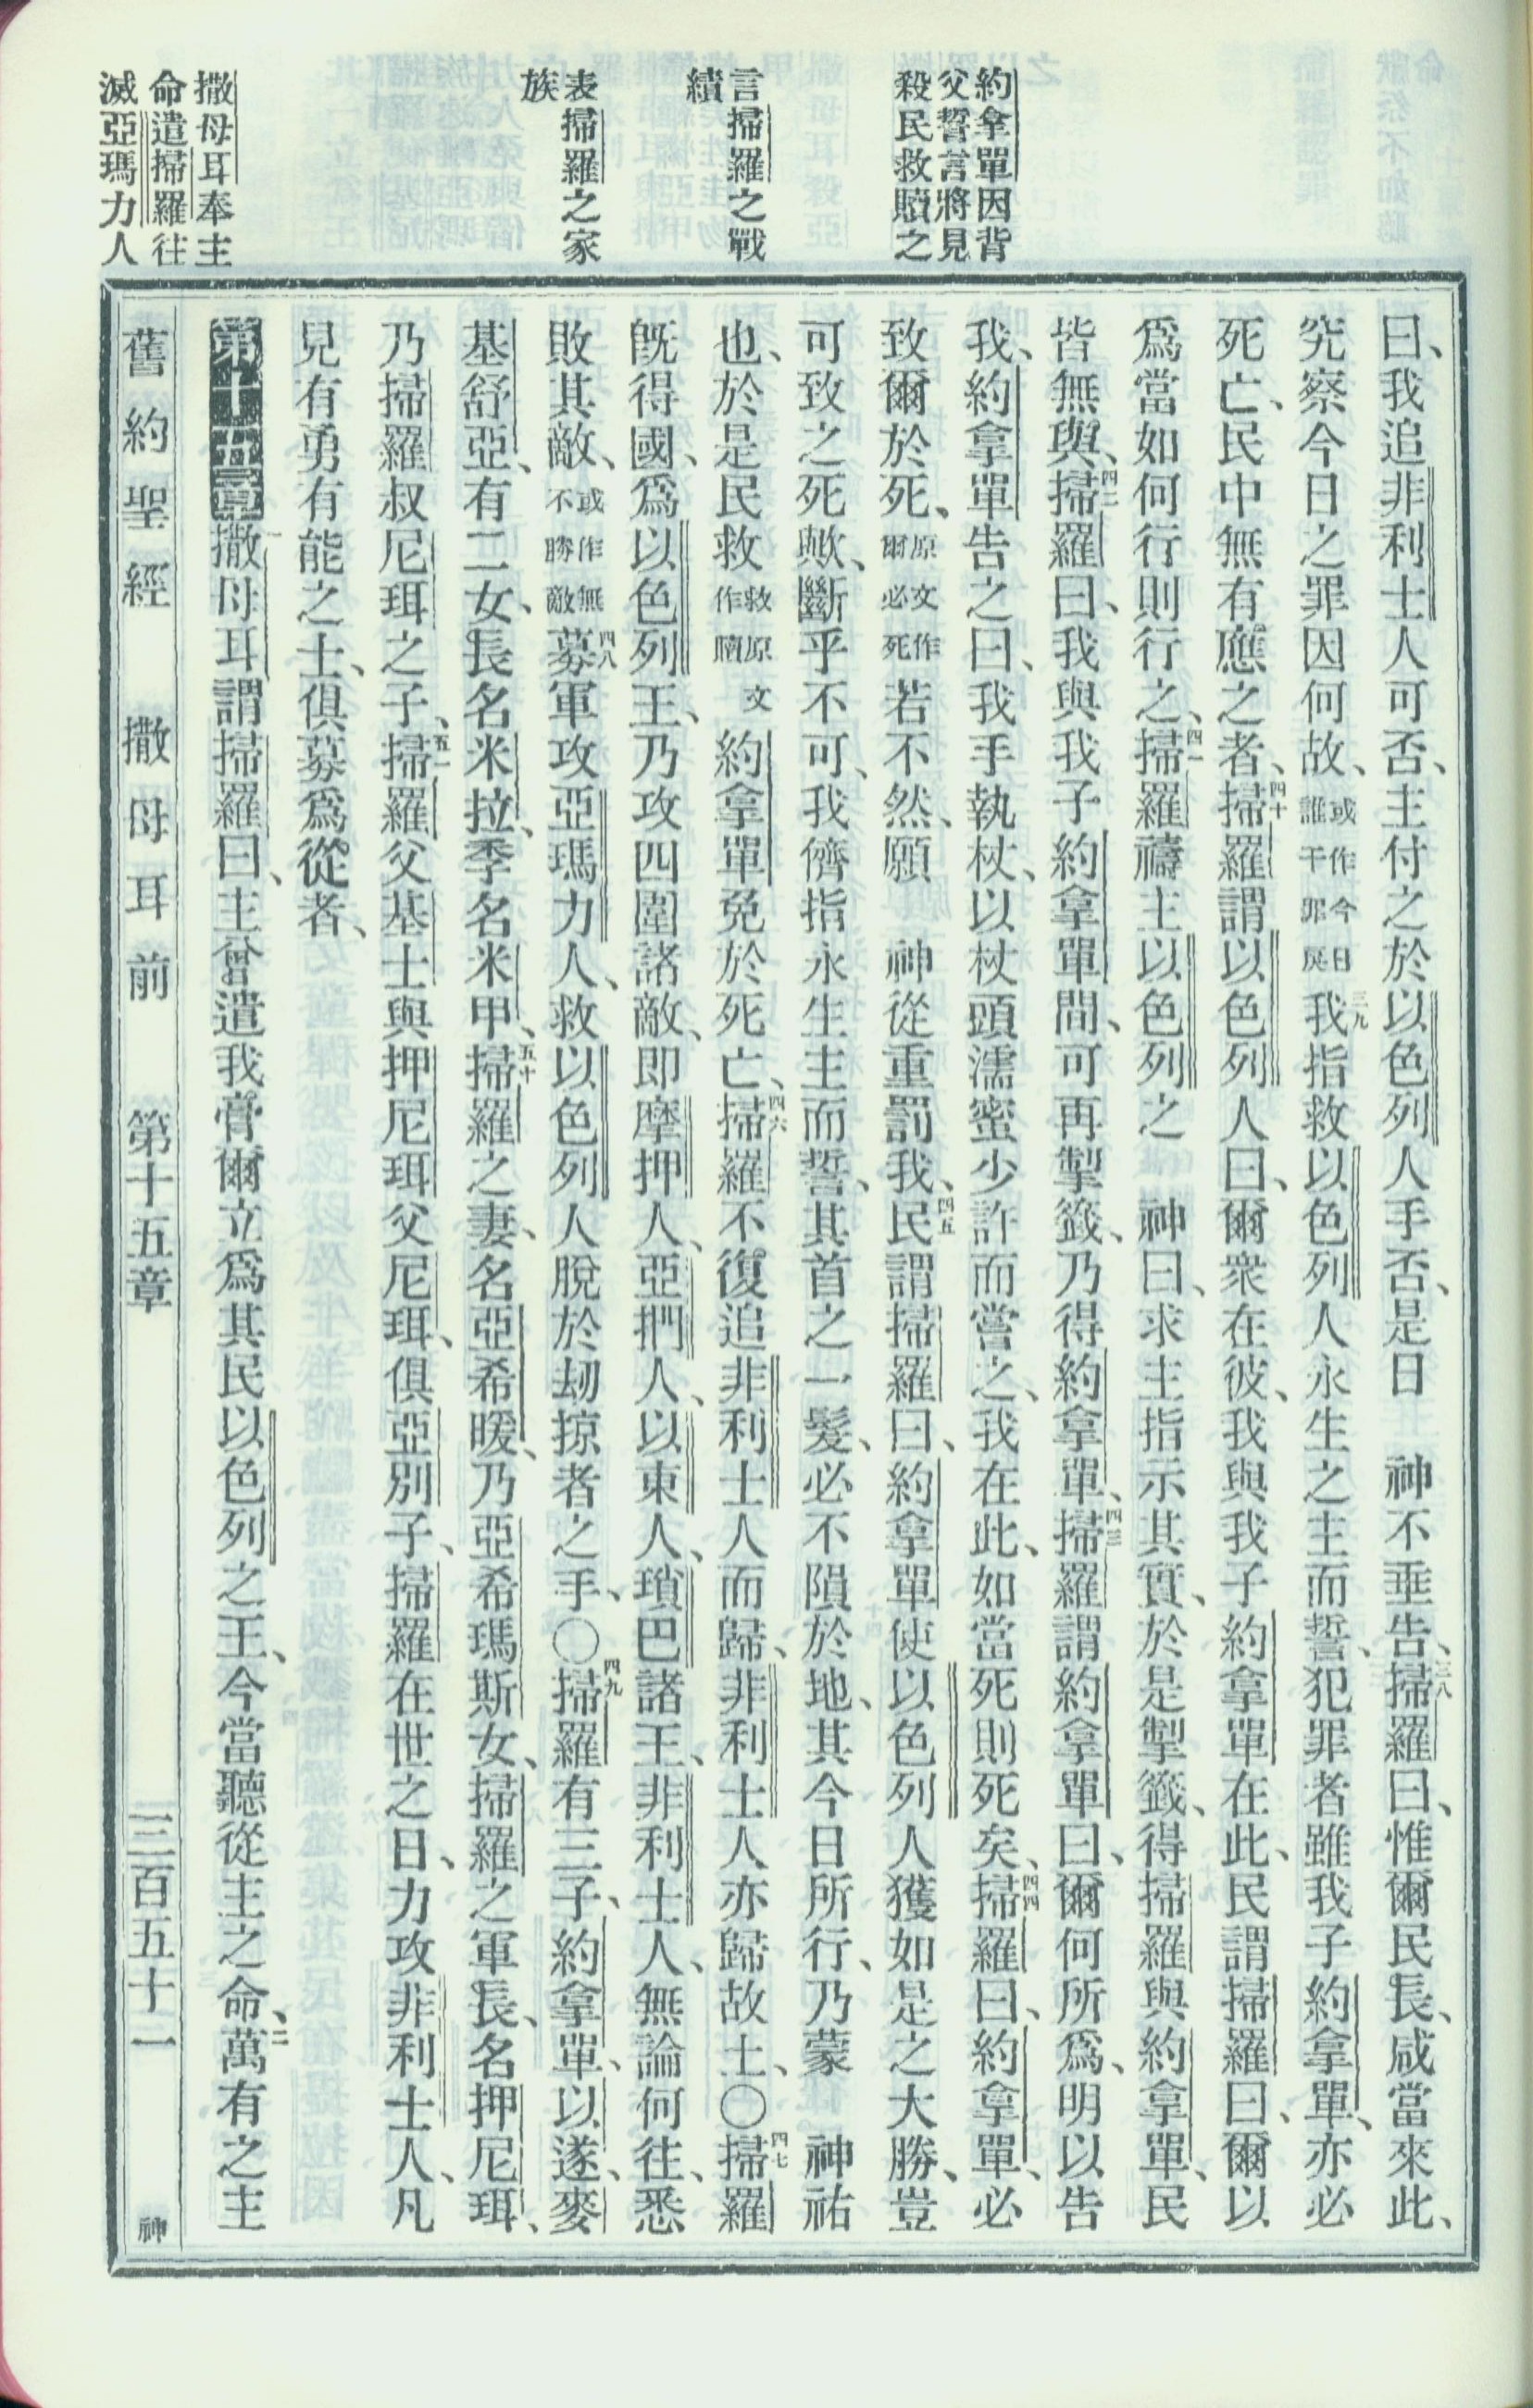 約拿單因背
父誓言將見
殺民救贖之
言掃羅之戰
績
表掃羅之家
族
撒母耳奉主
命遣掃羅往
滅亞瑪力人
曰、我追非利士人可否、主付之於以色列人手否、是日　神不垂告、三八掃羅曰、惟爾民長、咸當來此、
究察今日之罪因何故、或作今日誰干罪戾三九我指救以色列人永生之主而誓、犯罪者雖我子約拿單、亦必
死亡、民中無有應之者、四十掃羅謂以色列人曰、爾衆在彼、我與我子約拿單在此、民謂掃羅曰、爾以
爲當如何行則行之、四一掃羅禱主以色列之　神曰、求主指示其實、於是掣籤、得掃羅與約拿單、民
皆無與、四二掃羅曰、我與我子約拿單間、可再掣籤、乃得約拿單、四三掃羅謂約拿單曰、爾何所爲、明以告
我、約拿單告之曰、我手執杖、以杖頭濡蜜少許而嘗之、我在此、如當死則死矣、四四掃羅曰、約拿單、必
致爾於死、原文作爾必死若不然、願　神從重罰我、四五民謂掃羅曰、約拿單使以色列人獲如是之大勝、豈
可致之死歟、斷乎不可、我儕指永生主而誓、其首之一髮、必不隕於地、其今日所行、乃蒙　神祐
也、於是民救救原文作贖約拿單免於死亡、四六掃羅不復追非利士人而歸、非利士人亦歸故土、〇四七掃羅
旣得國、爲以色列王、乃攻四圍諸敵、即摩押人、亞捫人、以東人、瑣巴諸王、非利士人、無論何往、悉
敗其敵、或作無不勝敵四八募軍攻亞瑪力人、救以色列人脫於刼掠者之手、〇四九掃羅有三子、約拿單、以遂、麥
基舒亞、有二女、長名米拉、季名米甲、五十掃羅之妻、名亞希暖、乃亞希瑪斯女、掃羅之軍長、名押尼珥、
乃掃羅叔尼珥之子、五一掃羅父基士與押尼珥父尼珥、俱亞別子、掃羅在世之日、力攻非利士人、凡
見有勇有能之士、俱募爲從者、
第十五章一撒母耳謂掃羅曰、主曾遣我膏爾立爲其民以色列之王、今當聽從主之命、二萬有之主
舊約聖經　撒母耳前　第十五章　三百五十一　神